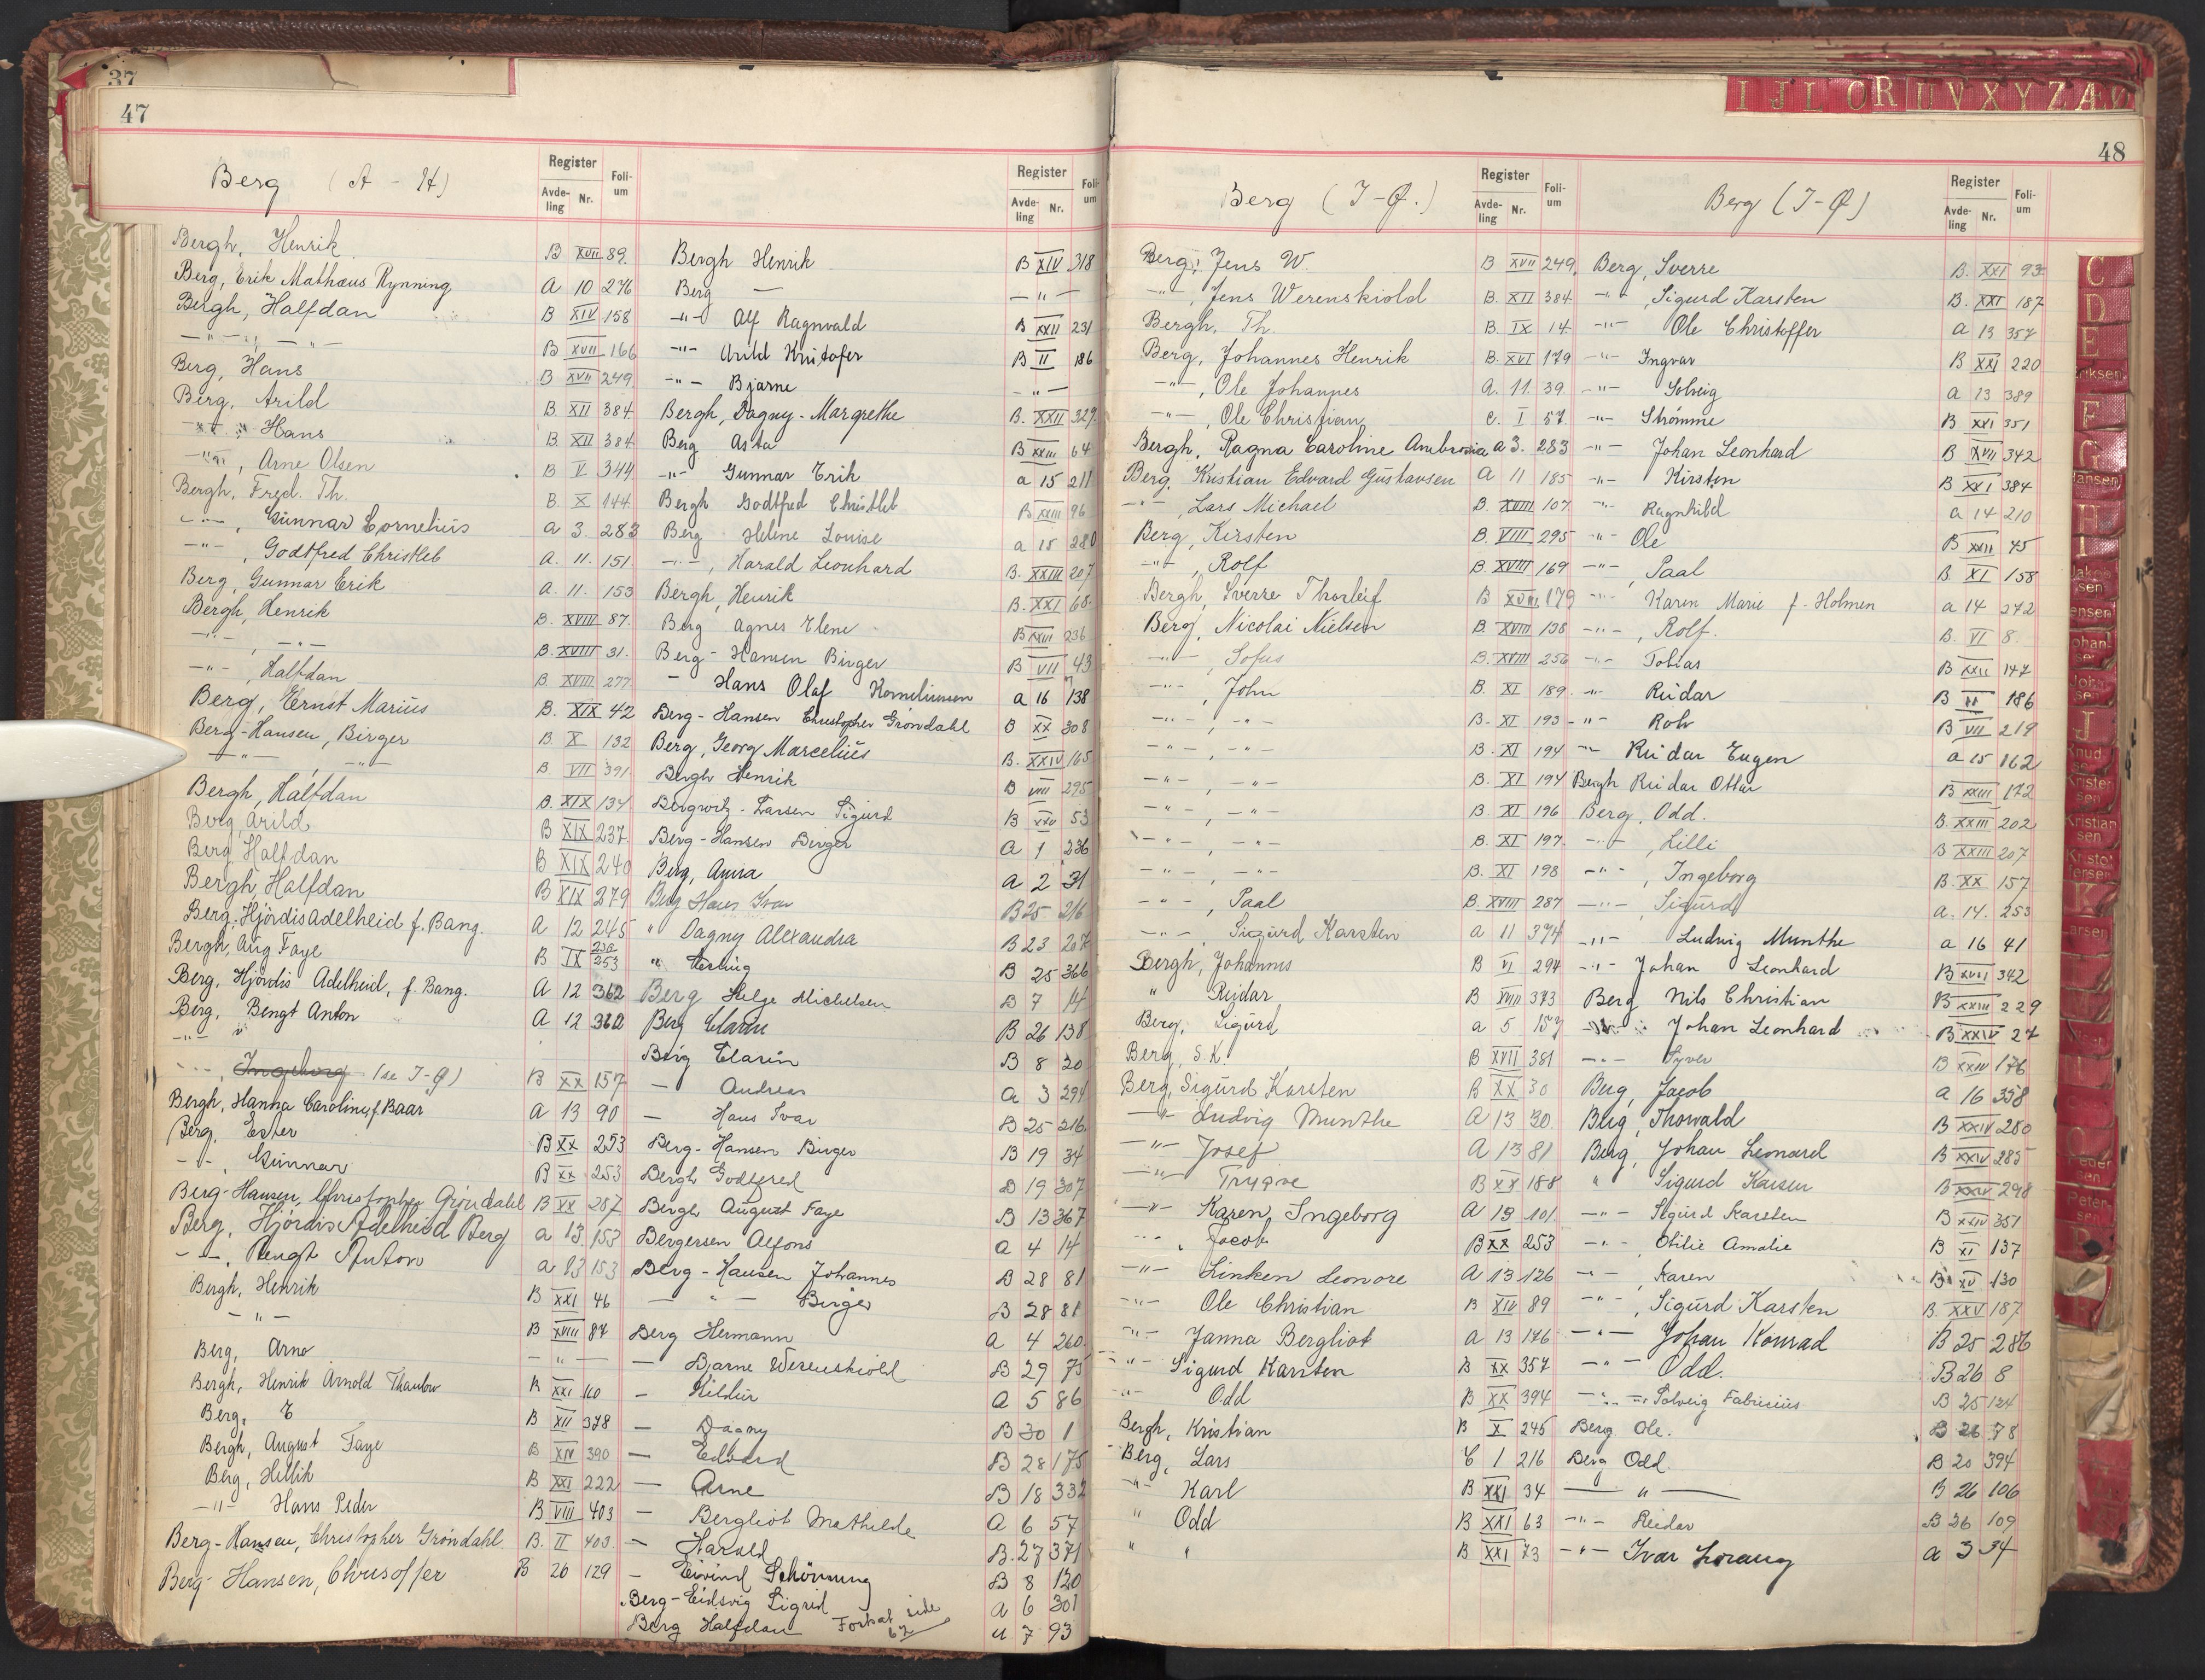 37
47
Berg (A - H)
Register
Avde-ling Nr. Foli-um
Bergh, Henrik B XVII 89
Berg, Erik Mathæus Rynning A 10 276
Bergh, Halfdan B XIV 158
-"- , -"- B XVII 166
Berg, Hans B XVII 249
Berg, Arild B XII 384
-"- Hans B XII 384
-"- , Arne Olsen B V 344
Bergh, Fred. Th. B X 144
-"- , Gunnar Cornelius a 3 283
-"- , Godtfred Christleb A. 11. 151
Berg, Gunnar Erik A. 11. 153
Bergh, Henrik B. XVIII 87.
-"- , -"- B. XVIII 31.
-"- , Halfdan B XVIII 277
Berg, Ernst Marius B. XIX 42
Berg-Hansen, Birger B X 132
-"- , -"- B. VII 391
Bergh, Halfdan B. XIX 134
Berg, Arild B XIX 237
Berg Halfdan B XIX 240
Bergh, Halfdan B XIX 279
Berg, Hjördis Adelheid f. Bang. A 12 245
Bergh, Aug Faye B IX 253
Berg, Hjördis Adelheid, f. Bang. A 12 362
Berg, Bengt Anton A 12 362
-"- "
-"- , Ingeborg (se I-Q) B XX 157
Bergh, Hanna Caroline, f. Baar A 13 90
Berg, Ester B XX 253
-"- , Gunnar B XX 253
Berg-Hansen, Christopher Gröndahl B XX 287
Berg, Hjördis Adelheid Berg a 13 153
-"- , Bengt Anton a 13 153
Bergh, Henrik B XXI 46
-"- B XVIII 87
Berg, Arno -"-
Bergh, Henrik Arnold Thaulow B XXI 160
Berg, E B XII 378
Bergh, August Faye B XIV 390
Berg, Henrik B XXI 222
-"- Hans Peder B VIII 403
Berg-Hansen, Christopher Gröndahl B. II 403
Berg-Hansen, Chrisoffer B 26 129
Register
Avde-ling Nr. Foli-um
Bergh Henrik B XIV 318
Berg — -"-
-"- Alf Ragnvald B XXII 231
-"- Arild Kristofer B II 186
-"- Bjarne -"-
Bergh, Dagny-Margrethe B. XXII 329
Berg Asta B XXIII 64
-"- Gunnar Erik a 15 211
Bergh Godtfred Christleb B XXIII 96
Berg Helene Louise a 15 280
-"- , Harald Leonhard B. XXIII 207
Bergh, Henrik B. XXI 68
Berg Agnes Elene B XXIII 236
Berg-Hansen Birger B VII 43
- Hans Olaf Korneliussen a 16 138
Berg-Hansen Christopher Gröndahl B XX 308
Berg, Georg Marcelius B. XXIV 165
Bergh Henrik B VIII 295
Bergwitz-Larsen Sigurd B XXV 53
Berg-Hansen Birger A 1 236
Berg, Anna A 2 31
Berg Hans Ivar B 25 216
" Dagny Alexandra B 23 207
" Erling B 25 366
Berg Helge Michelsen B 7 14
Berg Clarin B 26 138
Berg Clarin B 8 20
— Andreas a 3 294
— Hans Ivar B 25 216
Berg-Hansen Birger B 19 34
Bergh Godtfred B 19 307
Bergh August Faye B 13 367
Bergersen Alfons a 4 14
Berg-Hansen Johannes B 28 81
— " — Birger B 28 81
Berg Hermann a 4 260
— Bjarne Werenskiold B 29 75
— Hildur a 5 86
— Dagny B 30 1
— Edvard B 28 175
— Arne B 18 332
— Bergliot Mathilde a 6 57
— Harald B. 27 371
— Eivind Schönning B 8 120
Berg-Eidsvig Sigrid a 6 301
Berg Halfdan a 7 93
Fortsat side 62
I J L O R U V X Y Z Æ
48
Berg (I-Q.)
Register
Avde-ling Nr. Foli-um
Berg, Jens W. B XVII 249
-"- , Jens Werenskiold B. XII 384
Bergh, Th. B. IX 14
Berg, Johannes Henrik B. XVI 179
-"- , Ole Johannes A. 11. 39
-"- , Ole Christian C. I 57
Bergh, Ragna Caroline Ambrosia a 3. 283
Berg, Kristian Edvard Gustavsen A 11 185
-"- , Lars Michael B. XVIII 107
Berg, Kirsten B. VIII 295
-"- , Rolf B. XVIII 169
Bergh, Sverre Thorleif B XVIII 179
Berg, Nicolai Nielsen B. XVIII 138
-"- , Sofus B. XVIII 256
-"- , John B. XI 189
-"- , -"- B. XI 193
-"- , -"- B. XI 194
-"- , -"- B. XI 194
-"- , -"- B. XI 196
-"- , -"- B. XI 197
-"- , -"- B. XI 198
-"- , Paal B. XVIII 287
-"- , Sigurd Karsten A 11 394
Bergh, Johannes B VI 294
" Reidar B XVIII 373
Berg, Sigurd a 5 157
Berg, S.K. B XVII 381
Berg, Sigurd Karsten B XX 30
-"- Ludvig Munthe A 13 30
-"- Josef A 13 81
-"- Trygve B XX 188
-"- Karen Ingeborg A 13 101
-"- , Jacob B XX 253
-"- Linken Leonore A 13 126
-"- Ole Christian B XIV 89
-"- Janna Bergliot A 13 176
-"- Sigurd Karsten B XX 357
-"- Odd B XX 394
Bergh, Kristian B X 245
Berg, Lars C 1 216
-"- Karl B XXI 34
" Odd B XXI 63
" " B XXI 73
Berg (I-Q)
Register
Avde-ling Nr. Foli-um
Berg, Sverre B. XXI 93
-"- , Sigurd Karsten B. XXI 187
-"- Ole Christoffer a 13 357
-"- Ingvar B XXI 220
-"- Solveig a 13 389
-"- Strömme B XXI 351
-"- Johan Leonhard B XVII 342
-"- Kirsten B XXI 384
-"- Ragnhild a 14 210
-"- Ole B XXII 45
-"- , Paal B. XI 158
-"- Karen Marie f. Holmen a 14 242
-"- , Rolf. B. VI 8
-"- Tobias B XXII 147
-"- Reidar B II 186
-"- Rolv B VII 219
-"- Reidar Eugen a 15 162
Bergh Reidar Ottar B XXIII 172
Berg, Odd. B. XXIII 202
-"- , Lilli B XXIII 207
-"- , Ingeborg B. XX 157
-"- , Sigurd a. 14. 253
-"- Ludvig Munthe a 16 41
-"- Johan Leonhard B XVII 342
Berg Nils Christian B XXIII 229
-"- Johan Leonhard B XXIV 27
-"- Syver B XXIV 176
Berg, Jacob a 16 358
Berg, Thorvald B XXIV 280
Berg, Johan Leonard B XXIV 285
" Sigurd Karsen B XXIV 298
-"- Sigurd Karsten B XXIV 351
-"- , Otilie Amalie B XI 137
-"- , Karen B XV 130
-"- , Sigurd Karsten B. XXV 187
-"- Johan Konrad B 25 286
-"- Odd. B 26 8
-"- Solveig Fabricius B 25 124
Berg Ole. B 26 78
Berg Odd. B 20 394
— " — B 26 106
-"- Reidar B 26 109
-"- Ivar Lorang a 3 34
C
D
E
Eriksen
F
G
Hansen
H
I
Jakobsen
Jensen
Johansen
Johnsen
J
Knudsen
Kristensen
Kristiansen
Kristoffersen
K
Larsen
Pedersen
Petersen